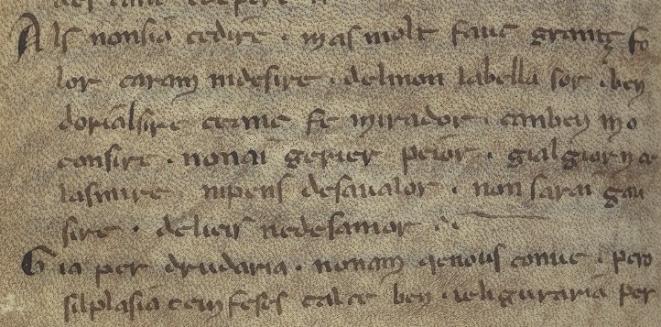 Als nonsia cedire · mas molt fauc grantz fo
lor caram mdesire · delmon labella sor · ben
dorialsire ceme fe mirador · canben mo
consire · nonai gerier peior · gial giorn a
lasmire nipens desaualor · non sarai gau
sire · delieis nedesamor ·
Gia per drudaria · nonam qenous conue · pero
silplasia cem feses calce ben · ueliguraria per